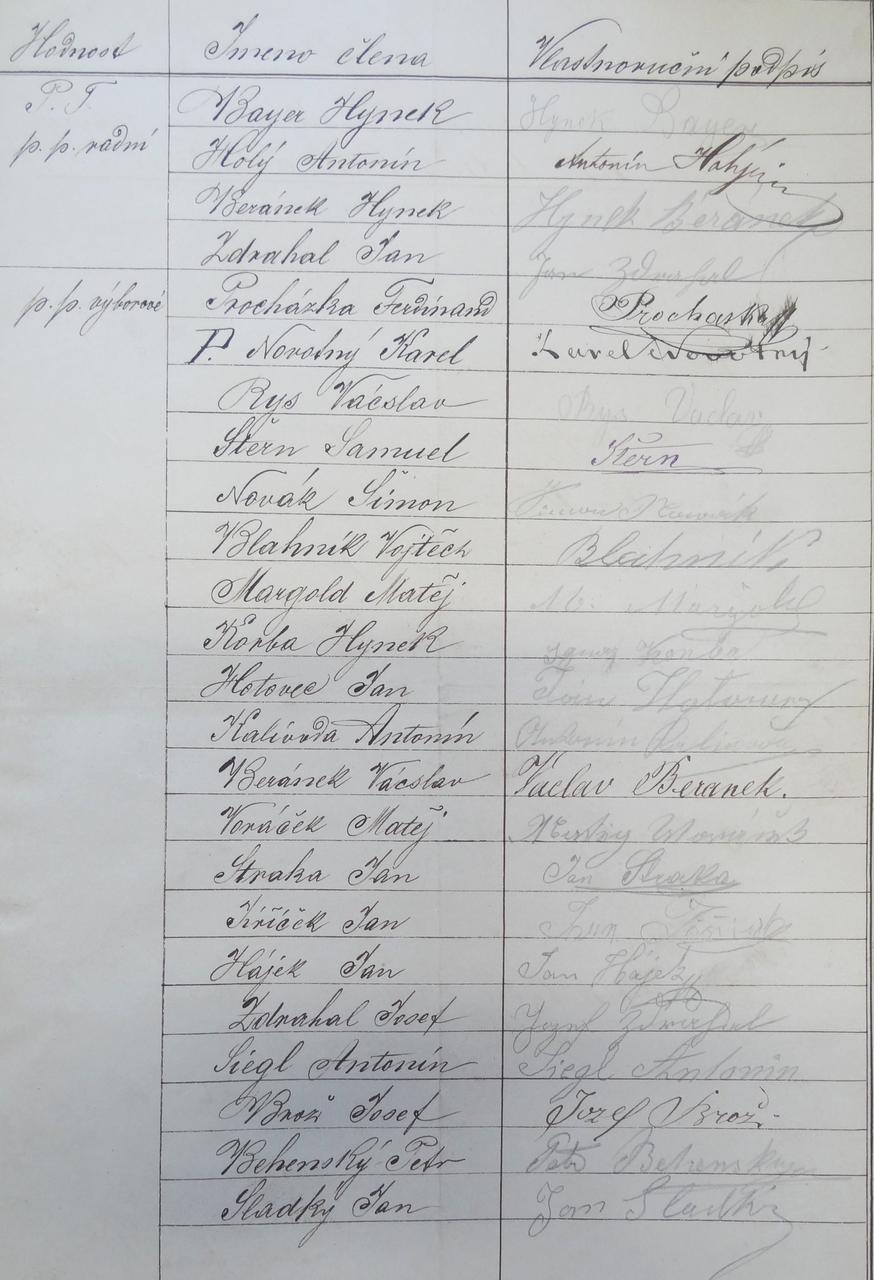 Hodnost Jmeno člena Vlastnoruční podpis
P. T. Bayer Hynek Hynek Bayer
p. p. radní Holý Antonín Antonín Holý
Beránek Hynek Hynek Beranek
Zdrahal Jan Jan Zdrahal
p. p. výborové Procházka Ferdinand Prochaska
P. Novotný Karel Karel Novotný
Rys Václav Rys Vaclav
Štern Samuel Štern
Novák Šimon Simon Nowak
Blahník Vojtěch Blahník
Margold Matěj M. Margold
Korba Hynek Ignaz Korba
Hotovec Jan Hotovec
Kalivoda Antonín Antonín
Beránek Václav Václav Beranek.
Voráček Matěj
Straka Jan Jan Straka
Jiříček Jan Jan
Hájek Jan Jan Hájek
Zdrahal Josef Jozef Zdrahal
Siegl Antonín Siegl Antonin
Brož Josef Jozef Brož.
Behenský Petr Petr Behensky
Sladký Jan Jan Sladký